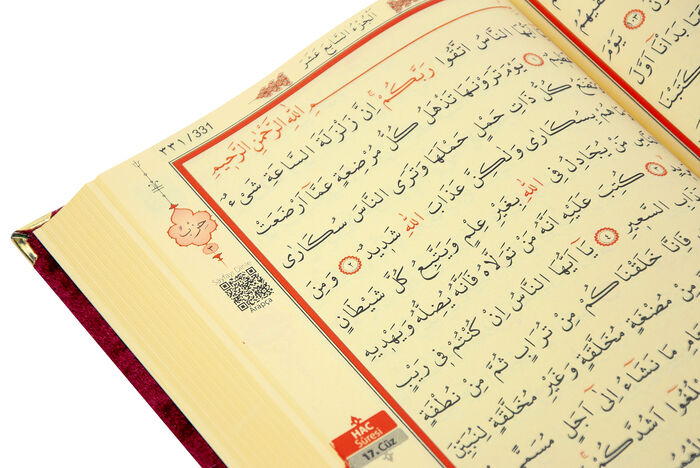 اَلْجُزْءُ السَّابِعُ عَشَرَ
٣٣١ / 331
اللّٰهِ الرَّحْمٰنِ الرَّحِيمِ
النَّاسُ اتَّقُوا رَبَّكُمْ اِنَّ زَلْزَلَةَ السَّاعَةِ شَىْءٌ
١ يَوْمَ تَرَوْنَهَا تَذْهَلُ كُلُّ مُرْضِعَةٍ عَمَّا اَرْضَعَتْ
كُلُّ ذَاتِ حَمْلٍ حَمْلَهَا وَتَرَى النَّاسَ سُكَارٰى
بِسُكَارٰى وَلٰكِنَّ عَذَابَ اللّٰهِ شَدِيدٌ ٢ وَمِنَ
مَنْ يُجَادِلُ فِى اللّٰهِ بِغَيْرِ عِلْمٍ وَيَتَّبِعُ كُلَّ شَيْطَانٍ
٣ كُتِبَ عَلَيْهِ اَنَّهُ مَنْ تَوَلَّاهُ فَاَنَّهُ يُضِلُّهُ وَيَهْدِيهِ
السَّعِيرِ ٤ يَا اَيُّهَا النَّاسُ اِنْ كُنْتُمْ فِى رَيْبٍ
فَاِنَّا خَلَقْنَاكُمْ مِنْ تُرَابٍ ثُمَّ مِنْ نُطْفَةٍ
مِنْ مُضْغَةٍ مُخَلَّقَةٍ وَغَيْرِ مُخَلَّقَةٍ لِنُبَيِّنَ
مَا نَشَاءُ اِلٰى اَجَلٍ مُسَمًّى
اَشُدَّكُمْ
حزب
Arapça
HAC
Sûresi
17. Cüz
١٠٣
يَوْمَ
بَدَأْنَا اَوَّلَ
كَتَبْنَا